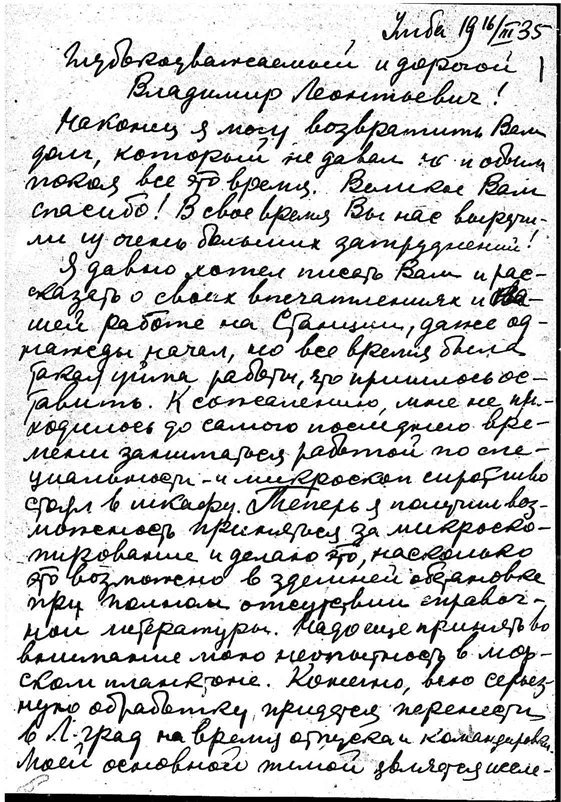 Умба 19 16/III 35
Глубокоуважаемый и дорогой
Владимир Леонтьевич!
Наконец я могу возвратить Вам
долг, который не давал
покоя все это время. Великое Вам
спасибо! В свое время Вы нас выручи-
ли из очень больших затруднений!
Я давно хотел писать Вам и рас-
сказать о своих впечатлениях и на-
шей работе на Станции, даже од-
нажды начал, но все время была
такая уйма работы, что пришлось ос-
тавить. К сожалению, мне не при-
ходилось до самого последнего вре-
мени заниматься работой по спе-
циальности - и микроскоп сиротливо
стоял в шкафу. Теперь я получил воз-
можность приняться за микроско-
пирование и делаю это, насколько
это возможно в здешней обстановке
при полном отсутствии справоч-
ной литературы. Надо еще принять во
внимание мою неопытность в мор-
ском планктоне. Конечно, всю серьез-
ную обработку придется перенести
в Л-град на время отпуска и командировки.
Моей основной темой является иссле-